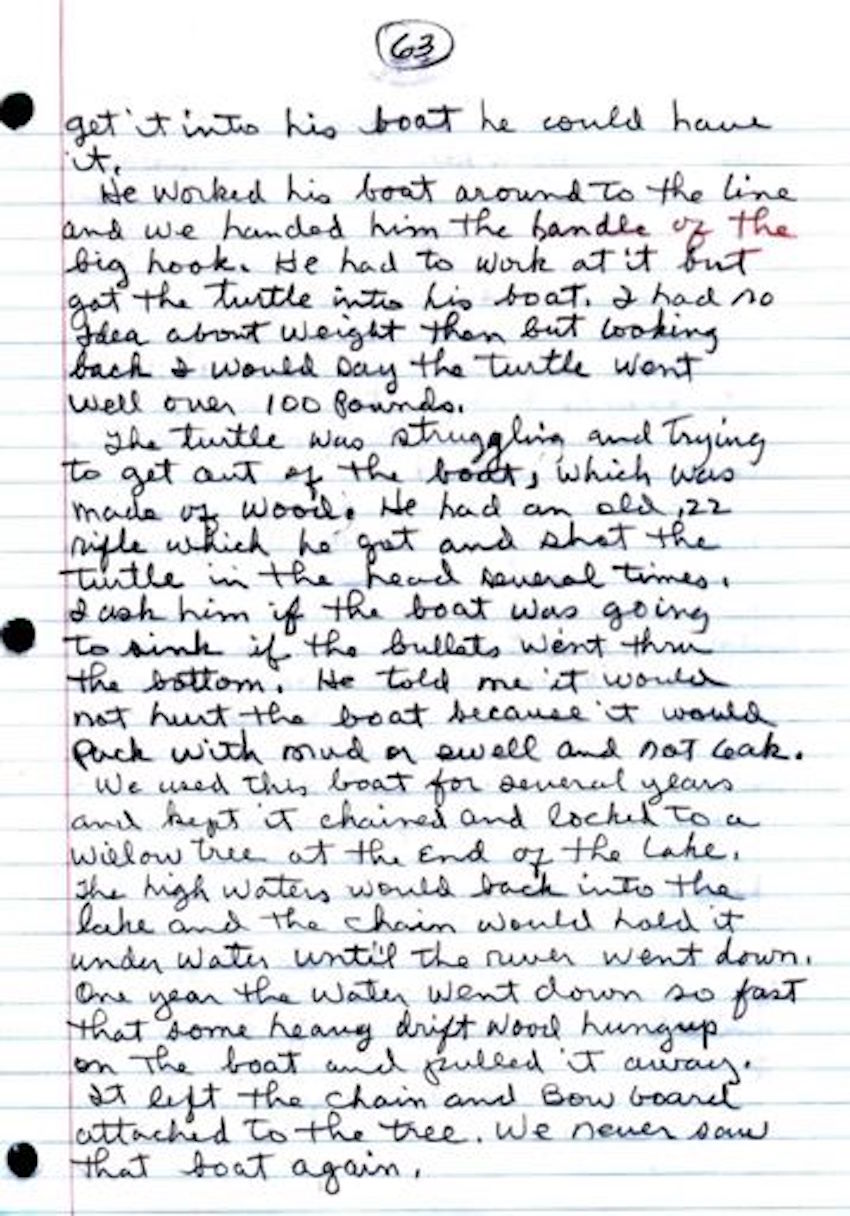 63
get it into his boat he could have
it.
He worked his boat around to the line
and we handed him the handle of the
big hook. He had to work at it but
got the turtle into his boat. I had no
Idea about weight then but looking
back I would say the turtle went
well over 100 Pounds.
The turtle was struggling and trying
to get out of the boat, which was
made of wood. He had an old .22
rifle which he got and shot the
turtle in the head several times.
I ask him if the boat was going
to sink if the bullets went thru
the bottom. He told me it would
not hurt the boat because it would
pack with mud or swell and not leak.
We used this boat for several years
and kept it chained and locked to a
willow tree at the End of the lake.
The high waters would back into the
lake and the chain would hold it
under water until the river went down.
One year the water went down so fast
that some heavy drift wood hungup
on the boat and pulled it away.
It left the chain and Bow board
attached to the tree. We never saw
that boat again.